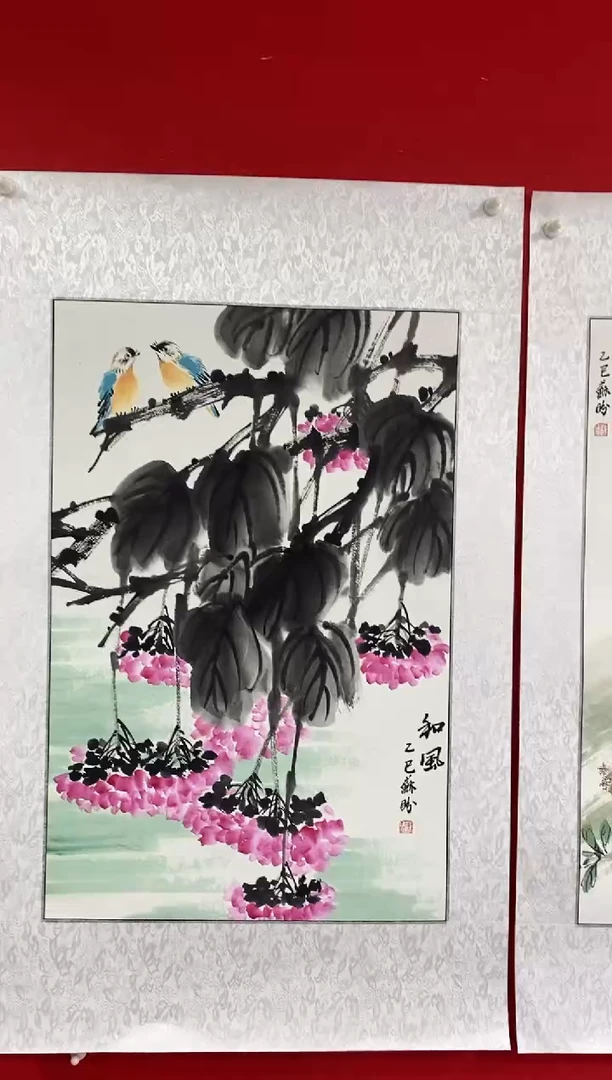 和風
乙巳蘇盼
乙巳蘇盼